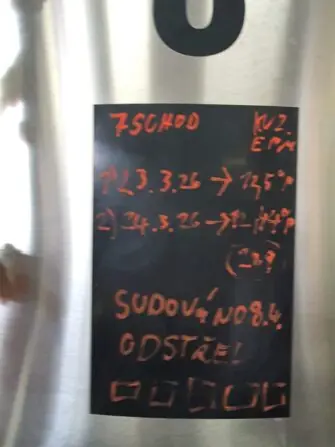 7SCHOD KVZ.
EPM
1) 23.3.26 → 12,5°P
2) 24.3.26 →
SUDOVÁNO 8.4.
ODSTŘEL